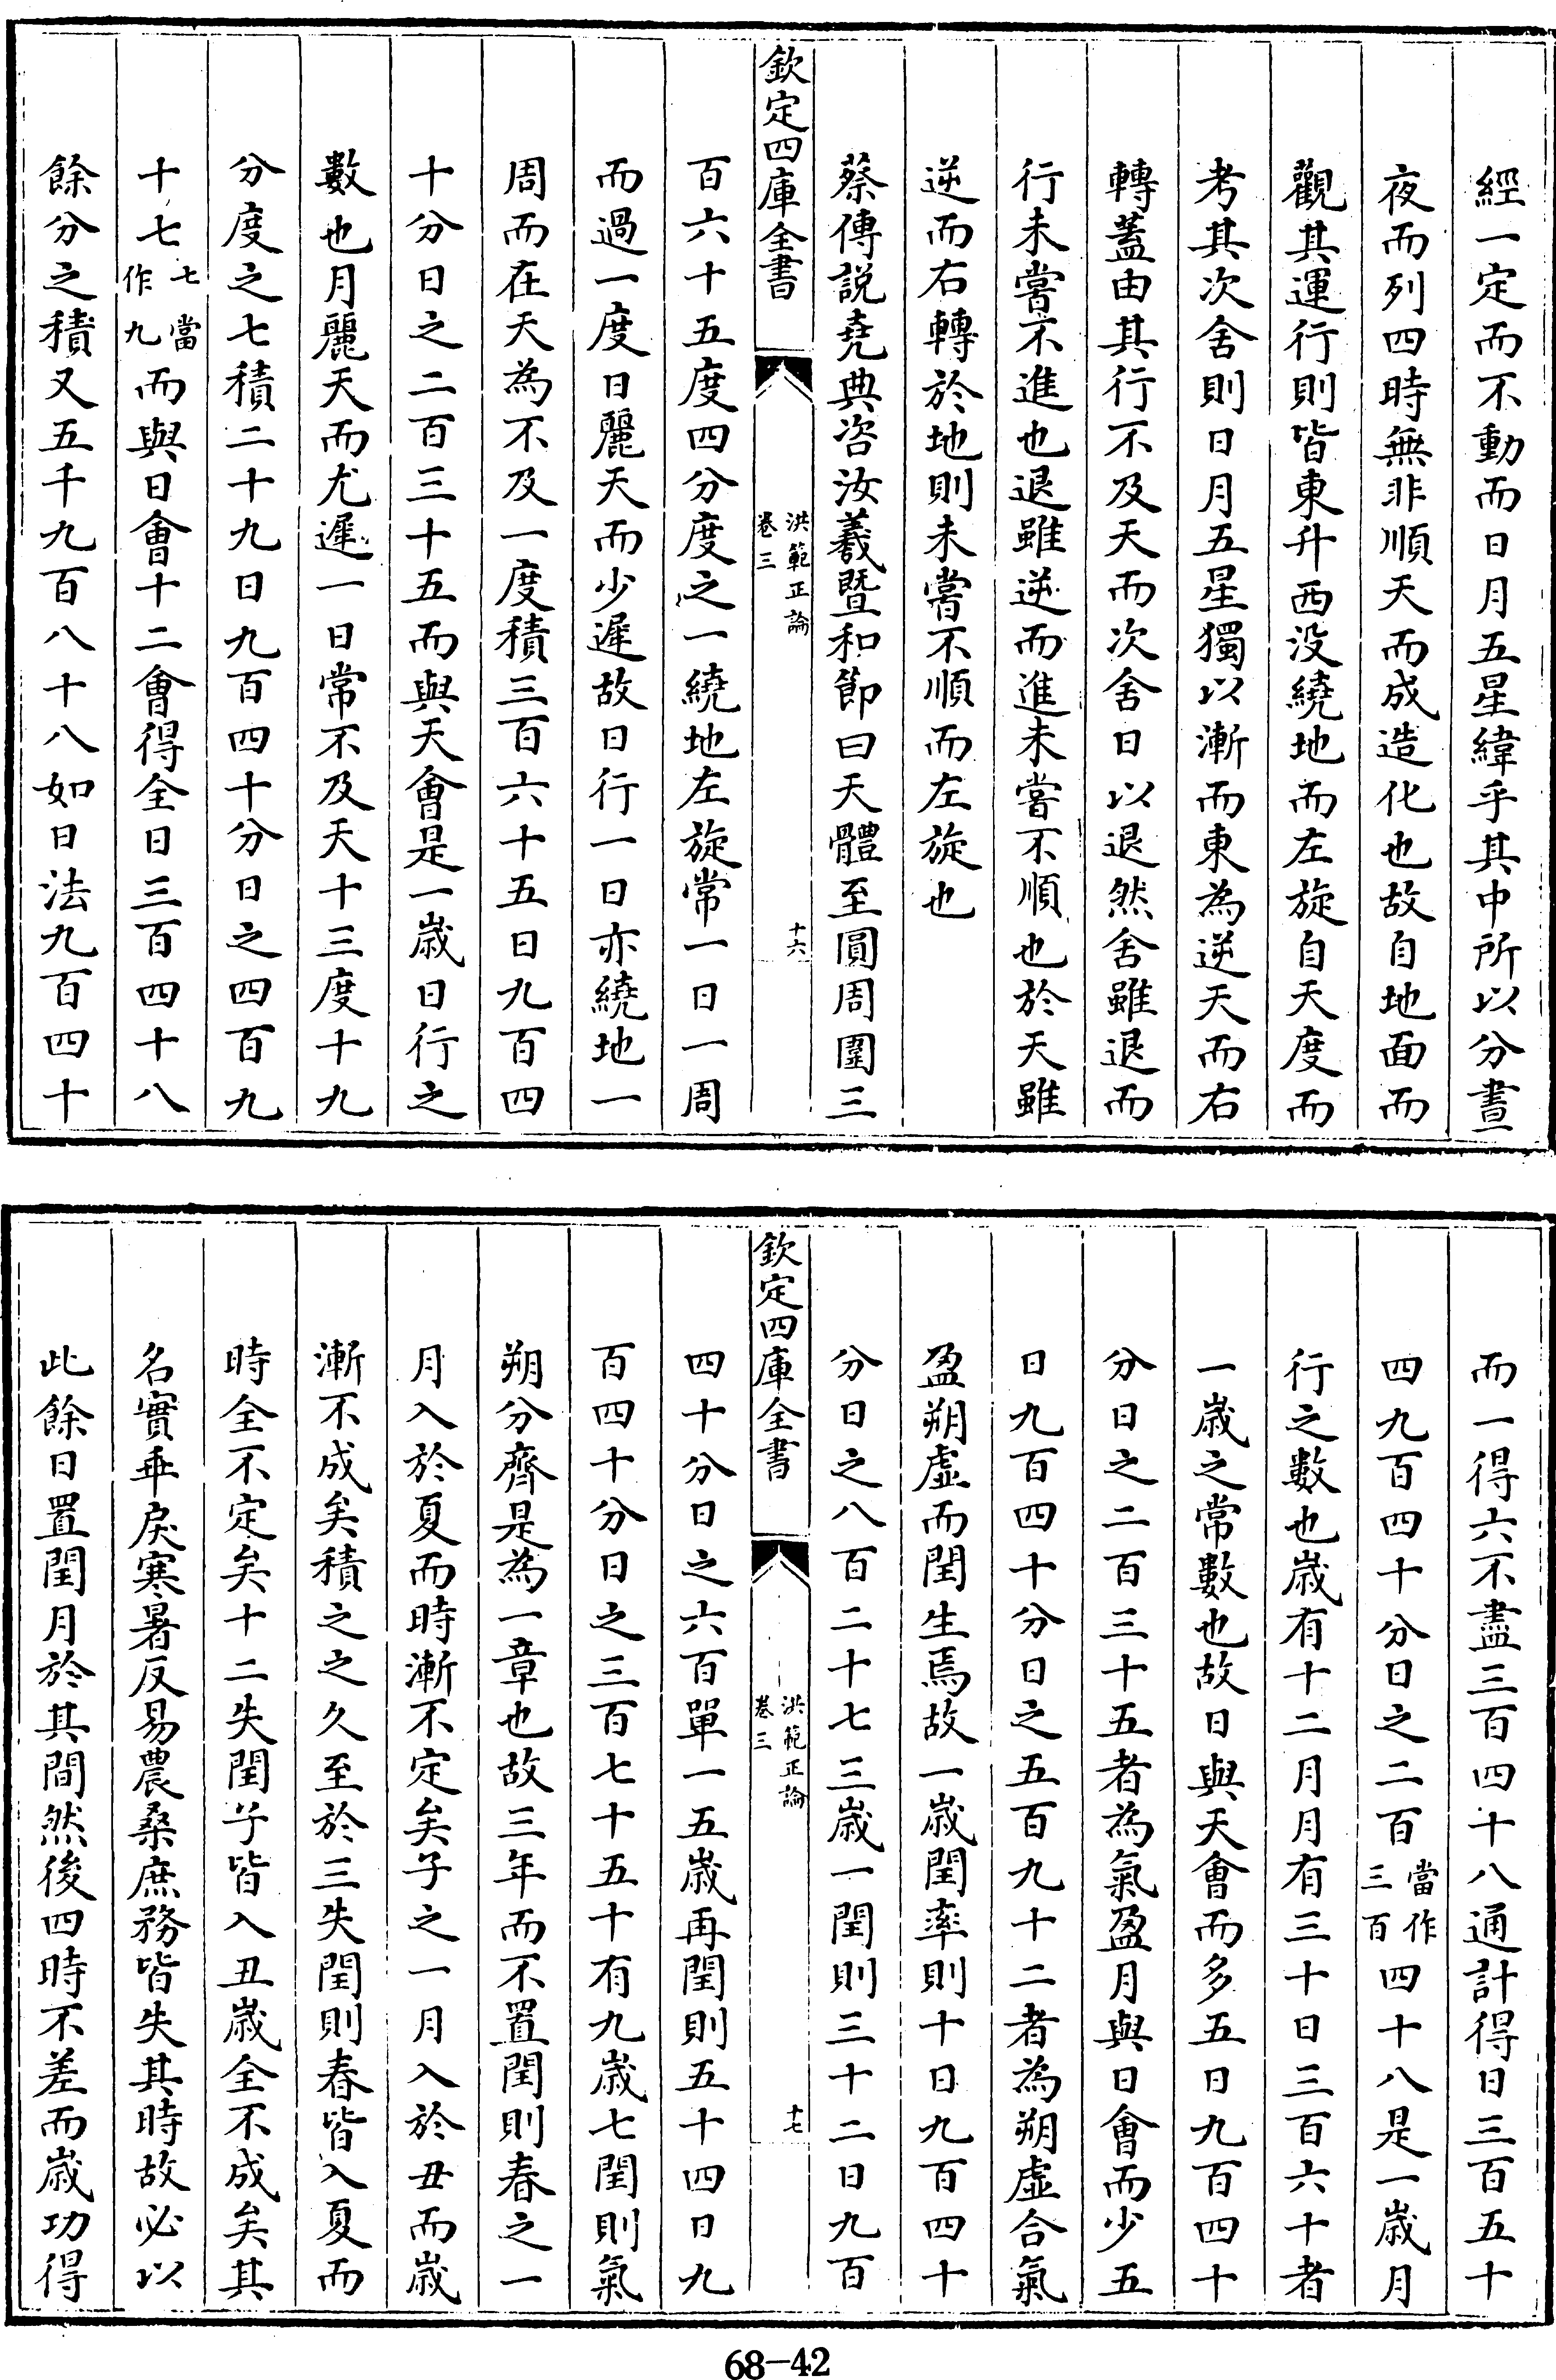 經一定而不動而日月五星緯乎其中所以分晝
夜而列四時無非順天而成造化也故自地面而
觀其運行則皆東升西没繞地而左旋自天度而
考其次舍則日月五星獨以漸而東為逆天而右
轉蓋由其行不及天而次舍日以退然舍雖退而
行未嘗不進也退雖逆而進未嘗不順也於天雖
逆而右轉於地則未嘗不順而左旋也
蔡傳説堯典咨汝羲暨和節曰天體至圓周圍三
欽定四庫全書
洪範正論
卷三
十六
百六十五度四分度之一繞地左旋常一日一周
而過一度日麗天而少遲故日行一日亦繞地一
周而在天為不及一度積三百六十五日九百四
十分日之二百三十五而與天會是一歳日行之
數也月麗天而尤遲一日常不及天十三度十九
分度之七積二十九日九百四十分日之四百九
十七七當作九而與日會十二會得全日三百四十八
餘分之積又五千九百八十八如日法九百四十
而一得六不盡三百四十八通計得日三百五十
四九百四十分日之二百當作三百四十八是一歳月
行之數也歳有十二月月有三十日三百六十者
一歳之常數也故日與天會而多五日九百四十
分日之二百三十五者為氣盈月與日會而少五
日九百四十分日之五百九十二者為朔虛合氣
盈朔虛而閏生焉故一歳閏率則十日九百四十
分日之八百二十七三歳一閏則三十二日九百
欽定四庫全書
洪範正論
卷三
十七
四十分日之六百單一五歳再閏則五十四日九
百四十分日之三百七十五十有九歳七閏則氣
朔分齊是為一章也故三年而不置閏則春之一
月入於夏而時漸不定矣子之一月入於丑而歳
漸不成矣積之之久至於三失閏則春皆入夏而
時全不定矣十二失閏子皆入丑歳全不成矣其
名實乖戾寒暑反易農桑庶務皆失其時故必以
此餘日置閏月於其間然後四時不差而歳功得
68-42